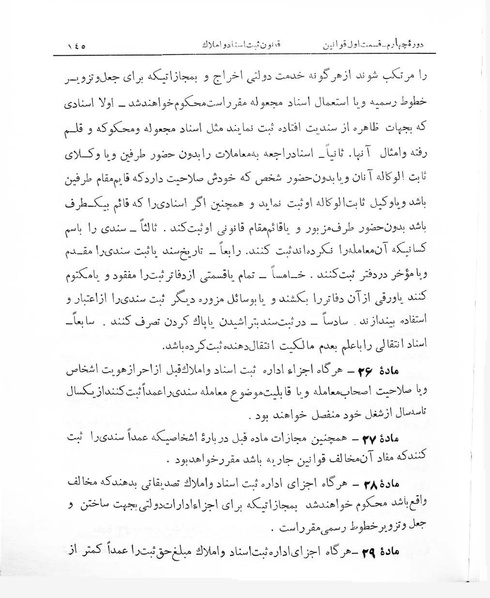 دورهٔ چهارم ـ قسمت اول قوانین قانون ثبت اسناد و املاک ۱۴۵
را مرتکب شوند از هر گونه خدمت دولتی اخراج و بمجازاتیکه برای جعل و تزویر
خطوط رسمیه و یا استعمال اسناد مجعوله مقرر است محکوم خواهند شد ـ اولا اسنادی
که بجهات ظاهره از سندیت افتاده ثبت نمایند مثل اسناد مجعوله و محکوکه و قلم
رفته و امثال آنها. ثانیاً ـ اسناد راجعه به معاملات را بدون حضور طرفین و یا وکلای
ثابت الوکاله آنان و یا بدون حضور شخص که خودش صلاحیت دارد که قایم مقام طرفین
باشد و یا وکیل ثابت الوکاله او ثبت نماید و همچنین اگر اسنادی را که قائم بیک طرف
باشد بدون حضور طرف مزبور و یا قائم مقام قانونی او ثبت کند. ثالثاً ـ سندی را باسم
کسانیکه آن معامله را نکرده اند ثبت کنند. رابعاً ـ تاریخ سند یا ثبت سندی را مقدم
و یا مؤخر در دفتر ثبت کنند. خامساً ـ تمام یا قسمتی از دفاتر ثبت را مفقود و یا مکتوم
کنند یا ورقی از آن دفاتر را بکشند و یا بوسائل مزوره دیگر ثبت سندی را از اعتبار و
استفاده بیندازند. سادساً ـ در ثبت سند بتراشیدن یا پاک کردن تصرف کنند. سابعاً ـ
اسناد انتقالی را با علم بعدم مالکیت انتقال دهنده ثبت کرده باشد.
مادهٔ ۲۶ ـ هر گاه اجزاء اداره ثبت اسناد و املاک قبل از احراز هویت اشخاص
و یا صلاحیت اصحاب معامله و یا قابلیت موضوع معامله سندی را عمداً ثبت کنند از یکسال
تا سه سال از شغل خود منفصل خواهند بود.
مادهٔ ۲۷ ـ همچنین مجازات ماده قبل در بارهٔ اشخاصیکه عمداً سندی را ثبت
کنند که مفاد آن مخالف قوانین جاریه باشد مقرر خواهد بود.
مادهٔ ۲۸ ـ هر گاه اجزای اداره ثبت اسناد و املاک تصدیقاتی بدهند که مخالف
واقع باشد محکوم خواهند شد بمجازاتیکه برای اجزاء ادارات دولتی بجهت ساختن و
جعل و تزویر خطوط رسمی مقرر است.
مادهٔ ۲۹ ـ هر گاه اجزای اداره ثبت اسناد و املاک مبلغ حق ثبت را عمداً کمتر از